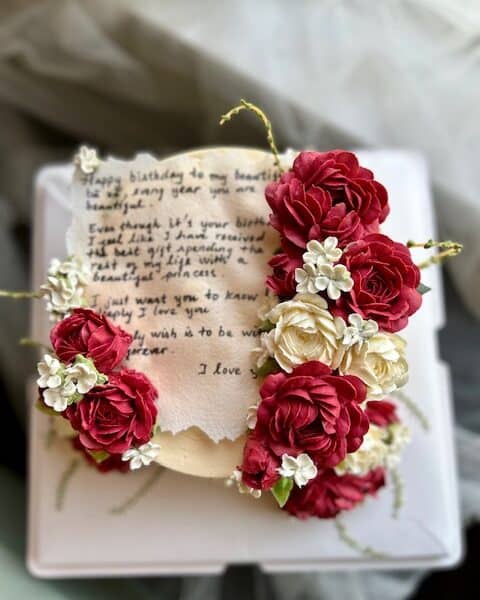 Happy birthday to my beautiful
every year you are
beautiful.
Even though it's your birth
I feel like I have received
the best gift spending the
rest of my life with a
beautiful princess.
I just want you to know
I love you
wish is to be wi
forever.
I love